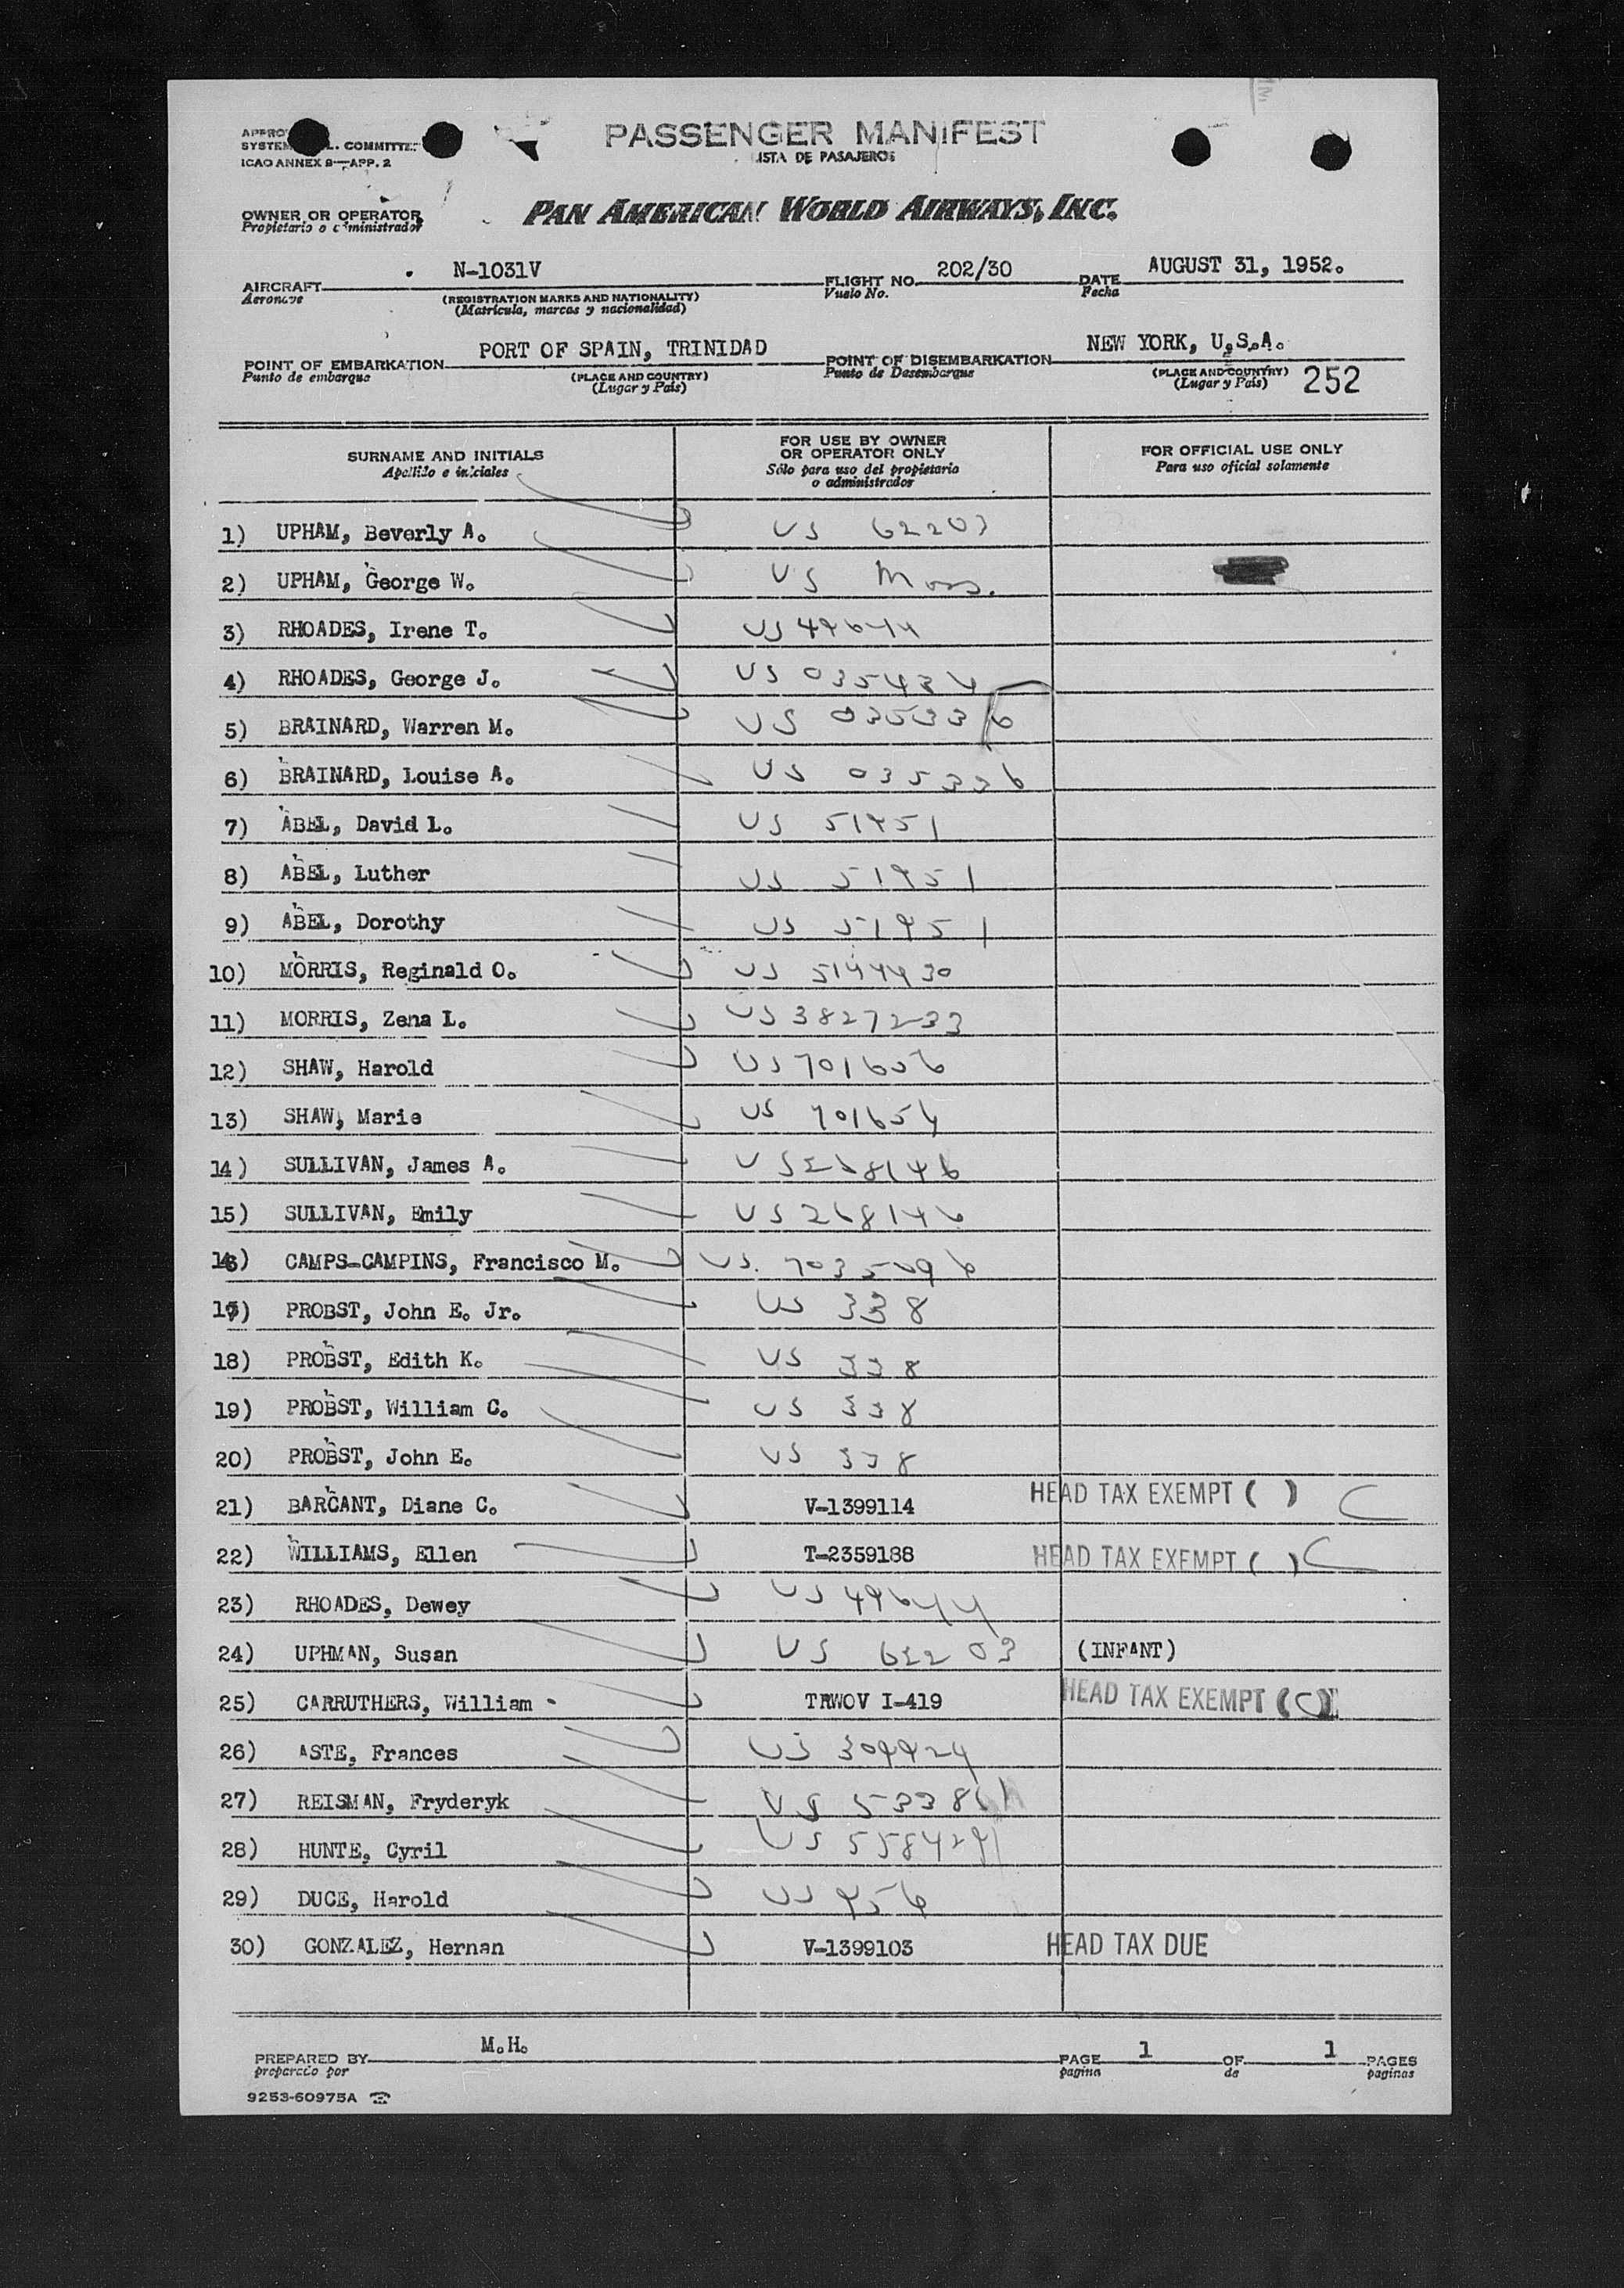 PASSENGER MANIFEST
LISTA DE PASAJEROS
ICAO ANNEX 9—APP. 2
OWNER OR OPERATOR
Propietario o administrador
PAN AMERICAN WORLD AIRWAYS, INC.
AIRCRAFT N-1031V FLIGHT NO. 202/30 DATE AUGUST 31, 1952.
Aeronave (REGISTRATION MARKS AND NATIONALITY) Vuelo No. Fecha
(Matrícula, marcas y nacionalidad)
POINT OF EMBARKATION PORT OF SPAIN, TRINIDAD POINT OF DISEMBARKATION NEW YORK, U.S.A.
Punto de embarque (PLACE AND COUNTRY) Punto de Desembarque (PLACE AND COUNTRY)
(Lugar y País) (Lugar y País) 252
SURNAME AND INITIALS FOR USE BY OWNER OR OPERATOR ONLY FOR OFFICIAL USE ONLY
Apellido e iniciales Sólo para uso del propietario o administrador Para uso oficial solamente
1) UPHAM, Beverly A. US 62203
2) UPHAM, George W. US Mass.
3) RHOADES, Irene T. US 49644
4) RHOADES, George J. US 035436
5) BRAINARD, Warren M. US 035336
6) BRAINARD, Louise A. US 035336
7) ABEL, David L. US 51951
8) ABEL, Luther US 51951
9) ABEL, Dorothy US 51951
10) MORRIS, Reginald O. US
11) MORRIS, Zena L. US 3827233
12) SHAW, Harold US 701656
13) SHAW, Marie US 701656
14) SULLIVAN, James A. US 268146
15) SULLIVAN, Emily US 268146
16) CAMPS-CAMPINS, Francisco M. US.
17) PROBST, John E. Jr. US 338
18) PROBST, Edith K. US 338
19) PROBST, William C. US 338
20) PROBST, John E. US 338
21) BARCANT, Diane C. V-1399114 HEAD TAX EXEMPT ( )
22) WILLIAMS, Ellen T-2359188 HEAD TAX EXEMPT ( )
23) RHOADES, Dewey US 49644
24) UPHMAN, Susan US 62203 (INFANT)
25) CARRUTHERS, William TRWOV I-419 HEAD TAX EXEMPT (C)
26) ASTE, Frances US 309924
27) REISMAN, Fryderyk US
28) HUNTE, Cyril US
29) DUCE, Harold US 956
30) GONZALEZ, Hernan V-1399103 HEAD TAX DUE
PREPARED BY M.H. PAGE 1 OF 1 PAGES
preparado por pagina de paginas
9253-60975A